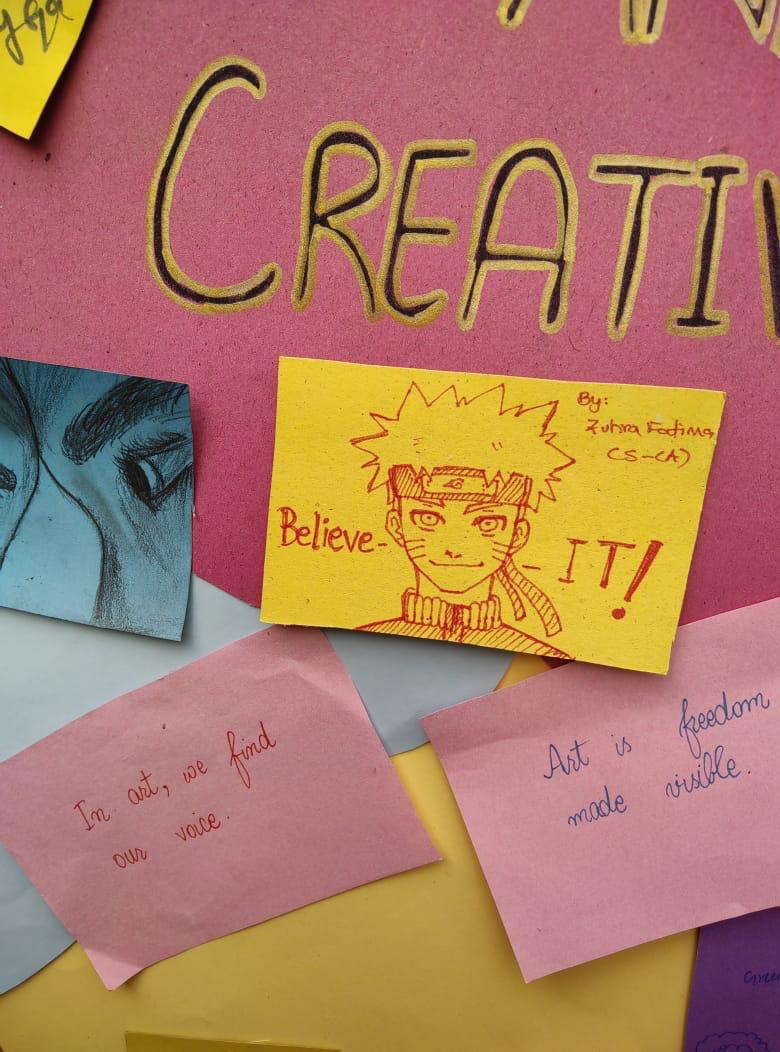 CREATI
By:
Zuhra Fatima
CS-(A)
Believe-
-IT!
In art, we find
our voice.
Art is freedom
made visible.